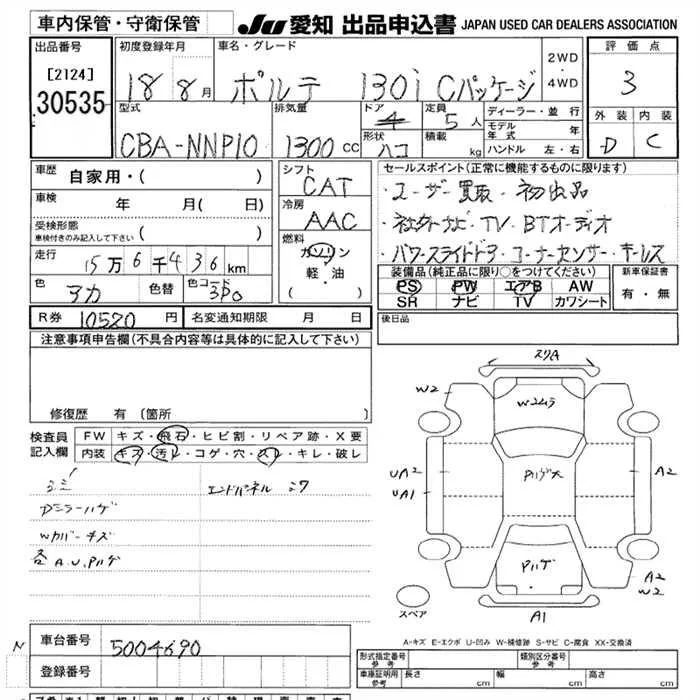 車内保管・守衛保管
JU 愛知 出品申込書 JAPAN USED CAR DEALERS ASSOCIATION
出品番号
[2124]
30535
初度登録年月
18 8月
車名・グレード
ポルテ 130i Cパッケージ
2WD
・
4WD
評価点
3
外装 内装
D C
型式
CBA-NNP10
排気量
1300 CC
ドア
4
形状
ハコ
定員
5 人
積載
kg
ディーラー・並 行
モデル年式 年
ハンドル 左・右
車歴 自家用・( )
車検 年 月( 日)
受検形態
車検付きのみ記入して下さい ( )
走行 15万6千436 km
色 アカ 色替 色コード 3P0
シフト
CAT
冷房
AAC
燃料
ガソリン
軽・油
( )
セールスポイント(正常に機能するものに限ります)
・ユーザー買取・初出品
・社外ナビ・TV・BTオーディオ
・パワースライドドア・コーナーセンサー・キーレス
装備品(純正品に限り○をつけてください)
PS PW エアB AW
SR ナビ TV カワシート
新車保証書
有・無
R券 10520 円 名変通知期限 月 日
後日品
注意事項申告欄(不具合内容等は具体的に記入して下さい)
修復歴 有(箇所
検査員記入欄
FW キズ・飛石・ヒビ割・リペア跡・X要
内装 キズ・汚レ・コゲ・穴・スレ・キレ・破レ
エンドパネル
Wカバーキズ
各A.U.Pハゲ
スリA
W2
Wコムラ
UA2
UA1
Pハゲ大
A2
Pハゲ
A2
W2
A1
スペア
A-キズ E-エクボ U-凹み W-補修跡 S-サビ C-腐食 XX-交換済
N
車台番号 5004690
登録番号
形式指定番号
参考
類別区分番号
参考
車庫証明用
参考
長さ cm 幅 cm 高さ cm